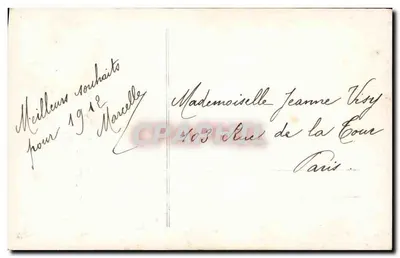 Meilleurs souhaits
pour 1912
Marcelle
Mademoiselle Jeanne
103 Rue de la Tour
Paris